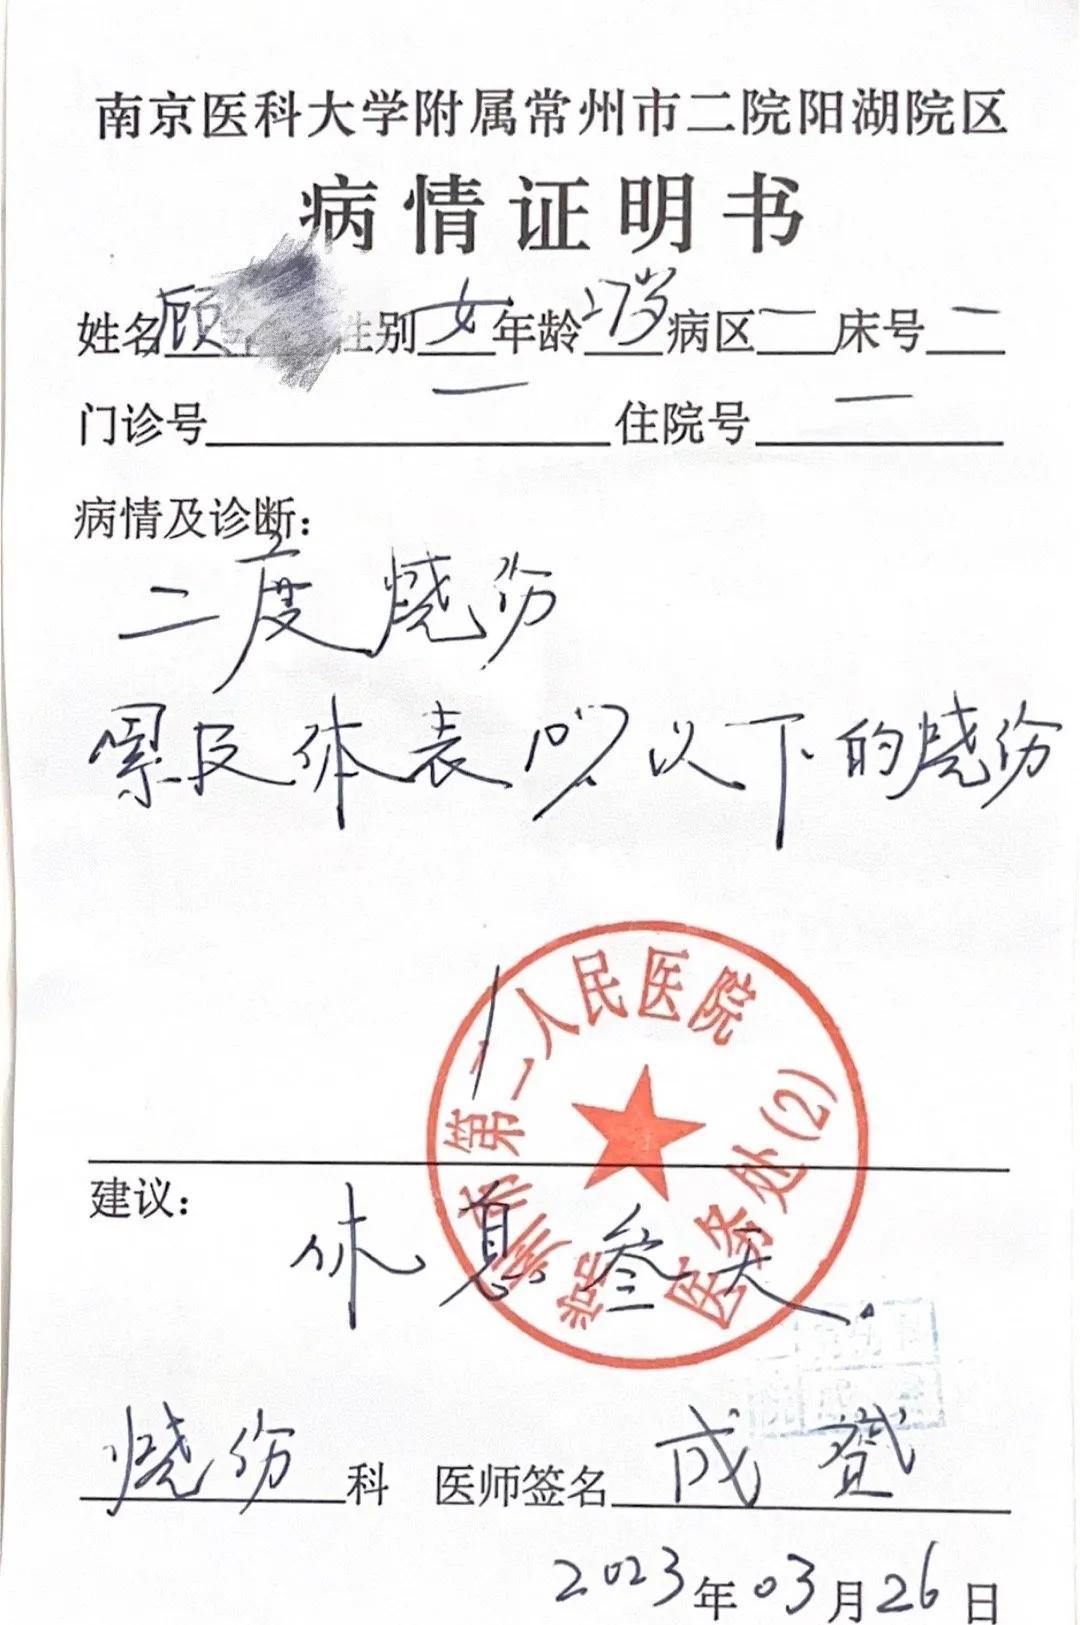 南京医科大学附属常州市二院阳湖院区
病情证明书
姓名 顾 性别 女 年龄 27岁 病区 一 床号 一
门诊号 一 住院号 一
病情及诊断：
二度烧伤
累及体表10%以下的烧伤
常州市第一人民医院
医务处(2)
建议：
休息叁天.
烧伤 科 医师签名 成赟
2023年03月26日